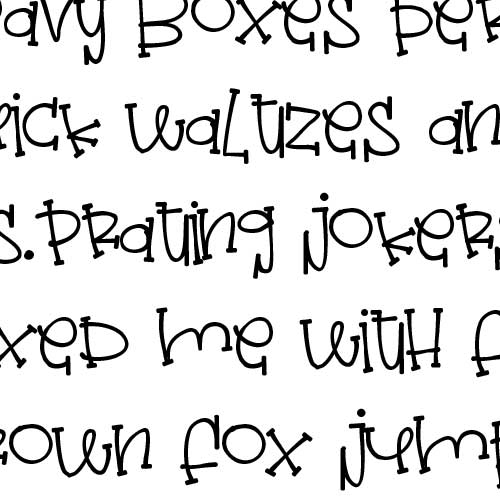 avy boxes per
ick waltzes an
s. Prating jokers
xed me with f
rown fox jump